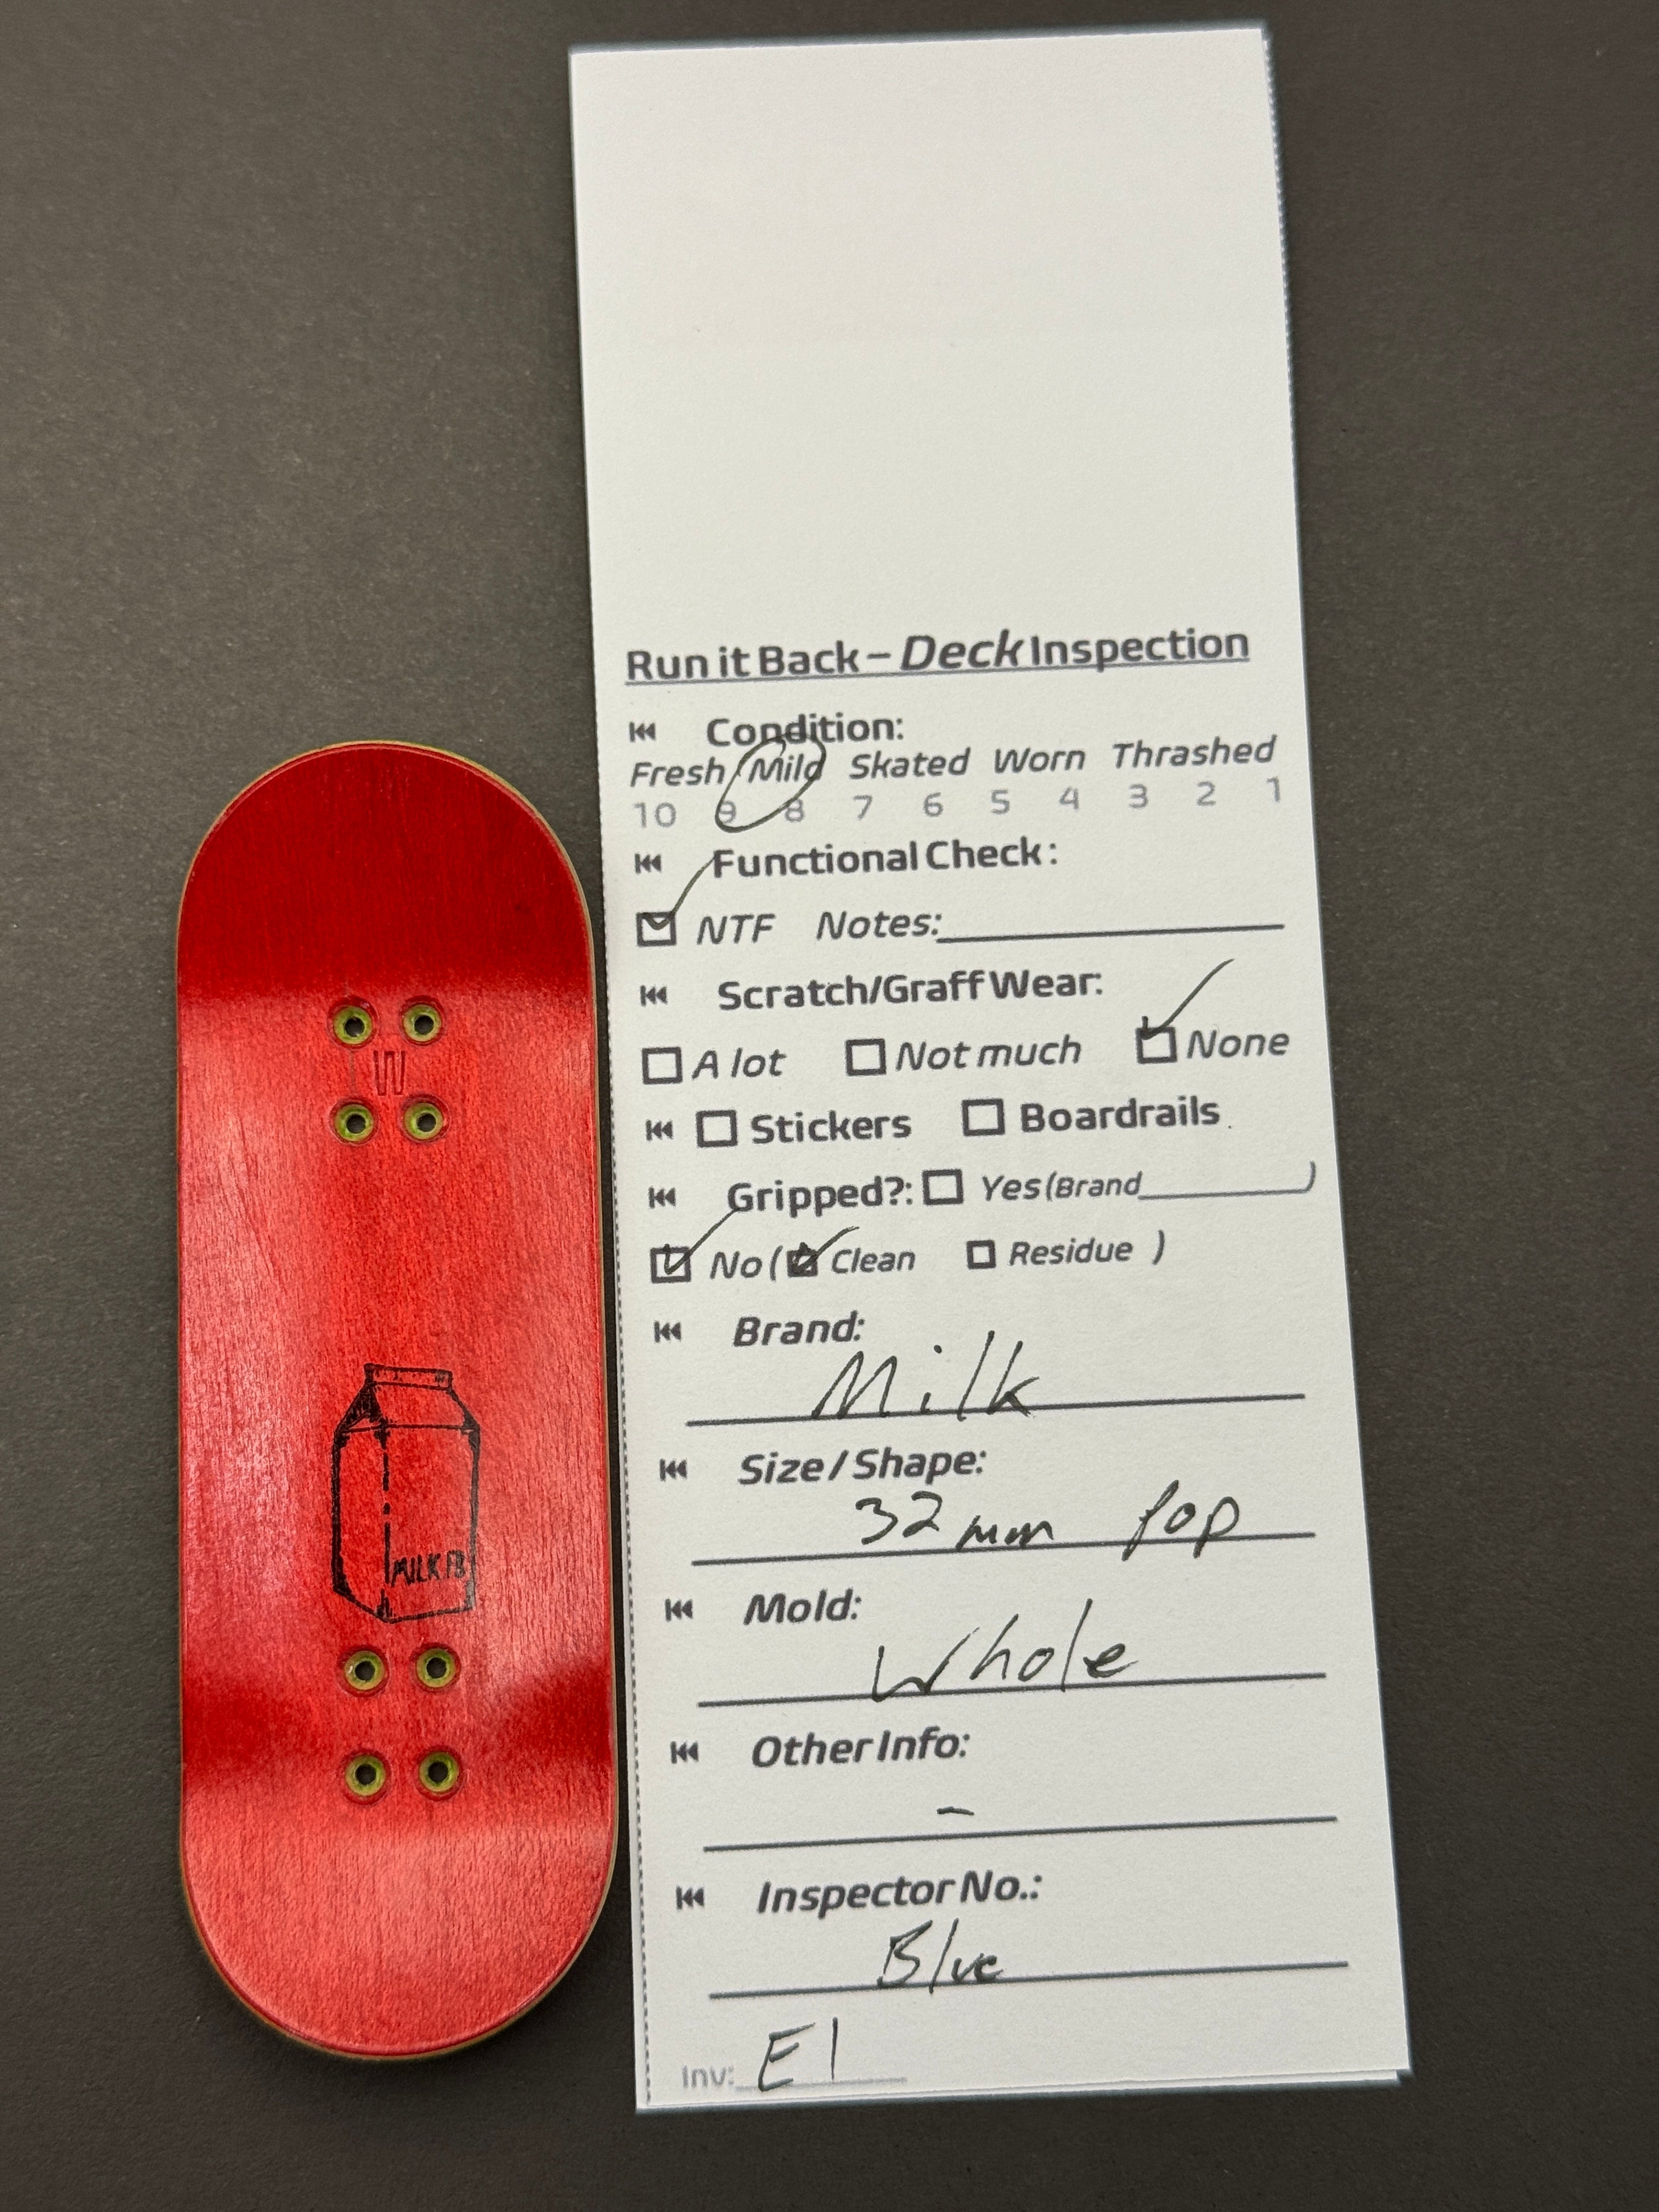 Run it Back – Deck Inspection
Condition:
Fresh Mild Skated Worn Thrashed
10 9 8 7 6 5 4 3 2 1
Functional Check:
NTF Notes:
Scratch/Graff Wear:
A lot Not much None
Stickers Boardrails
Gripped?: Yes (Brand )
No ( Clean Residue )
Brand:
Milk
Size / Shape:
32mm pop
Mold:
Whole
Other Info:
-
Inspector No.:
Blue
Inv: E1
W
MILK FB